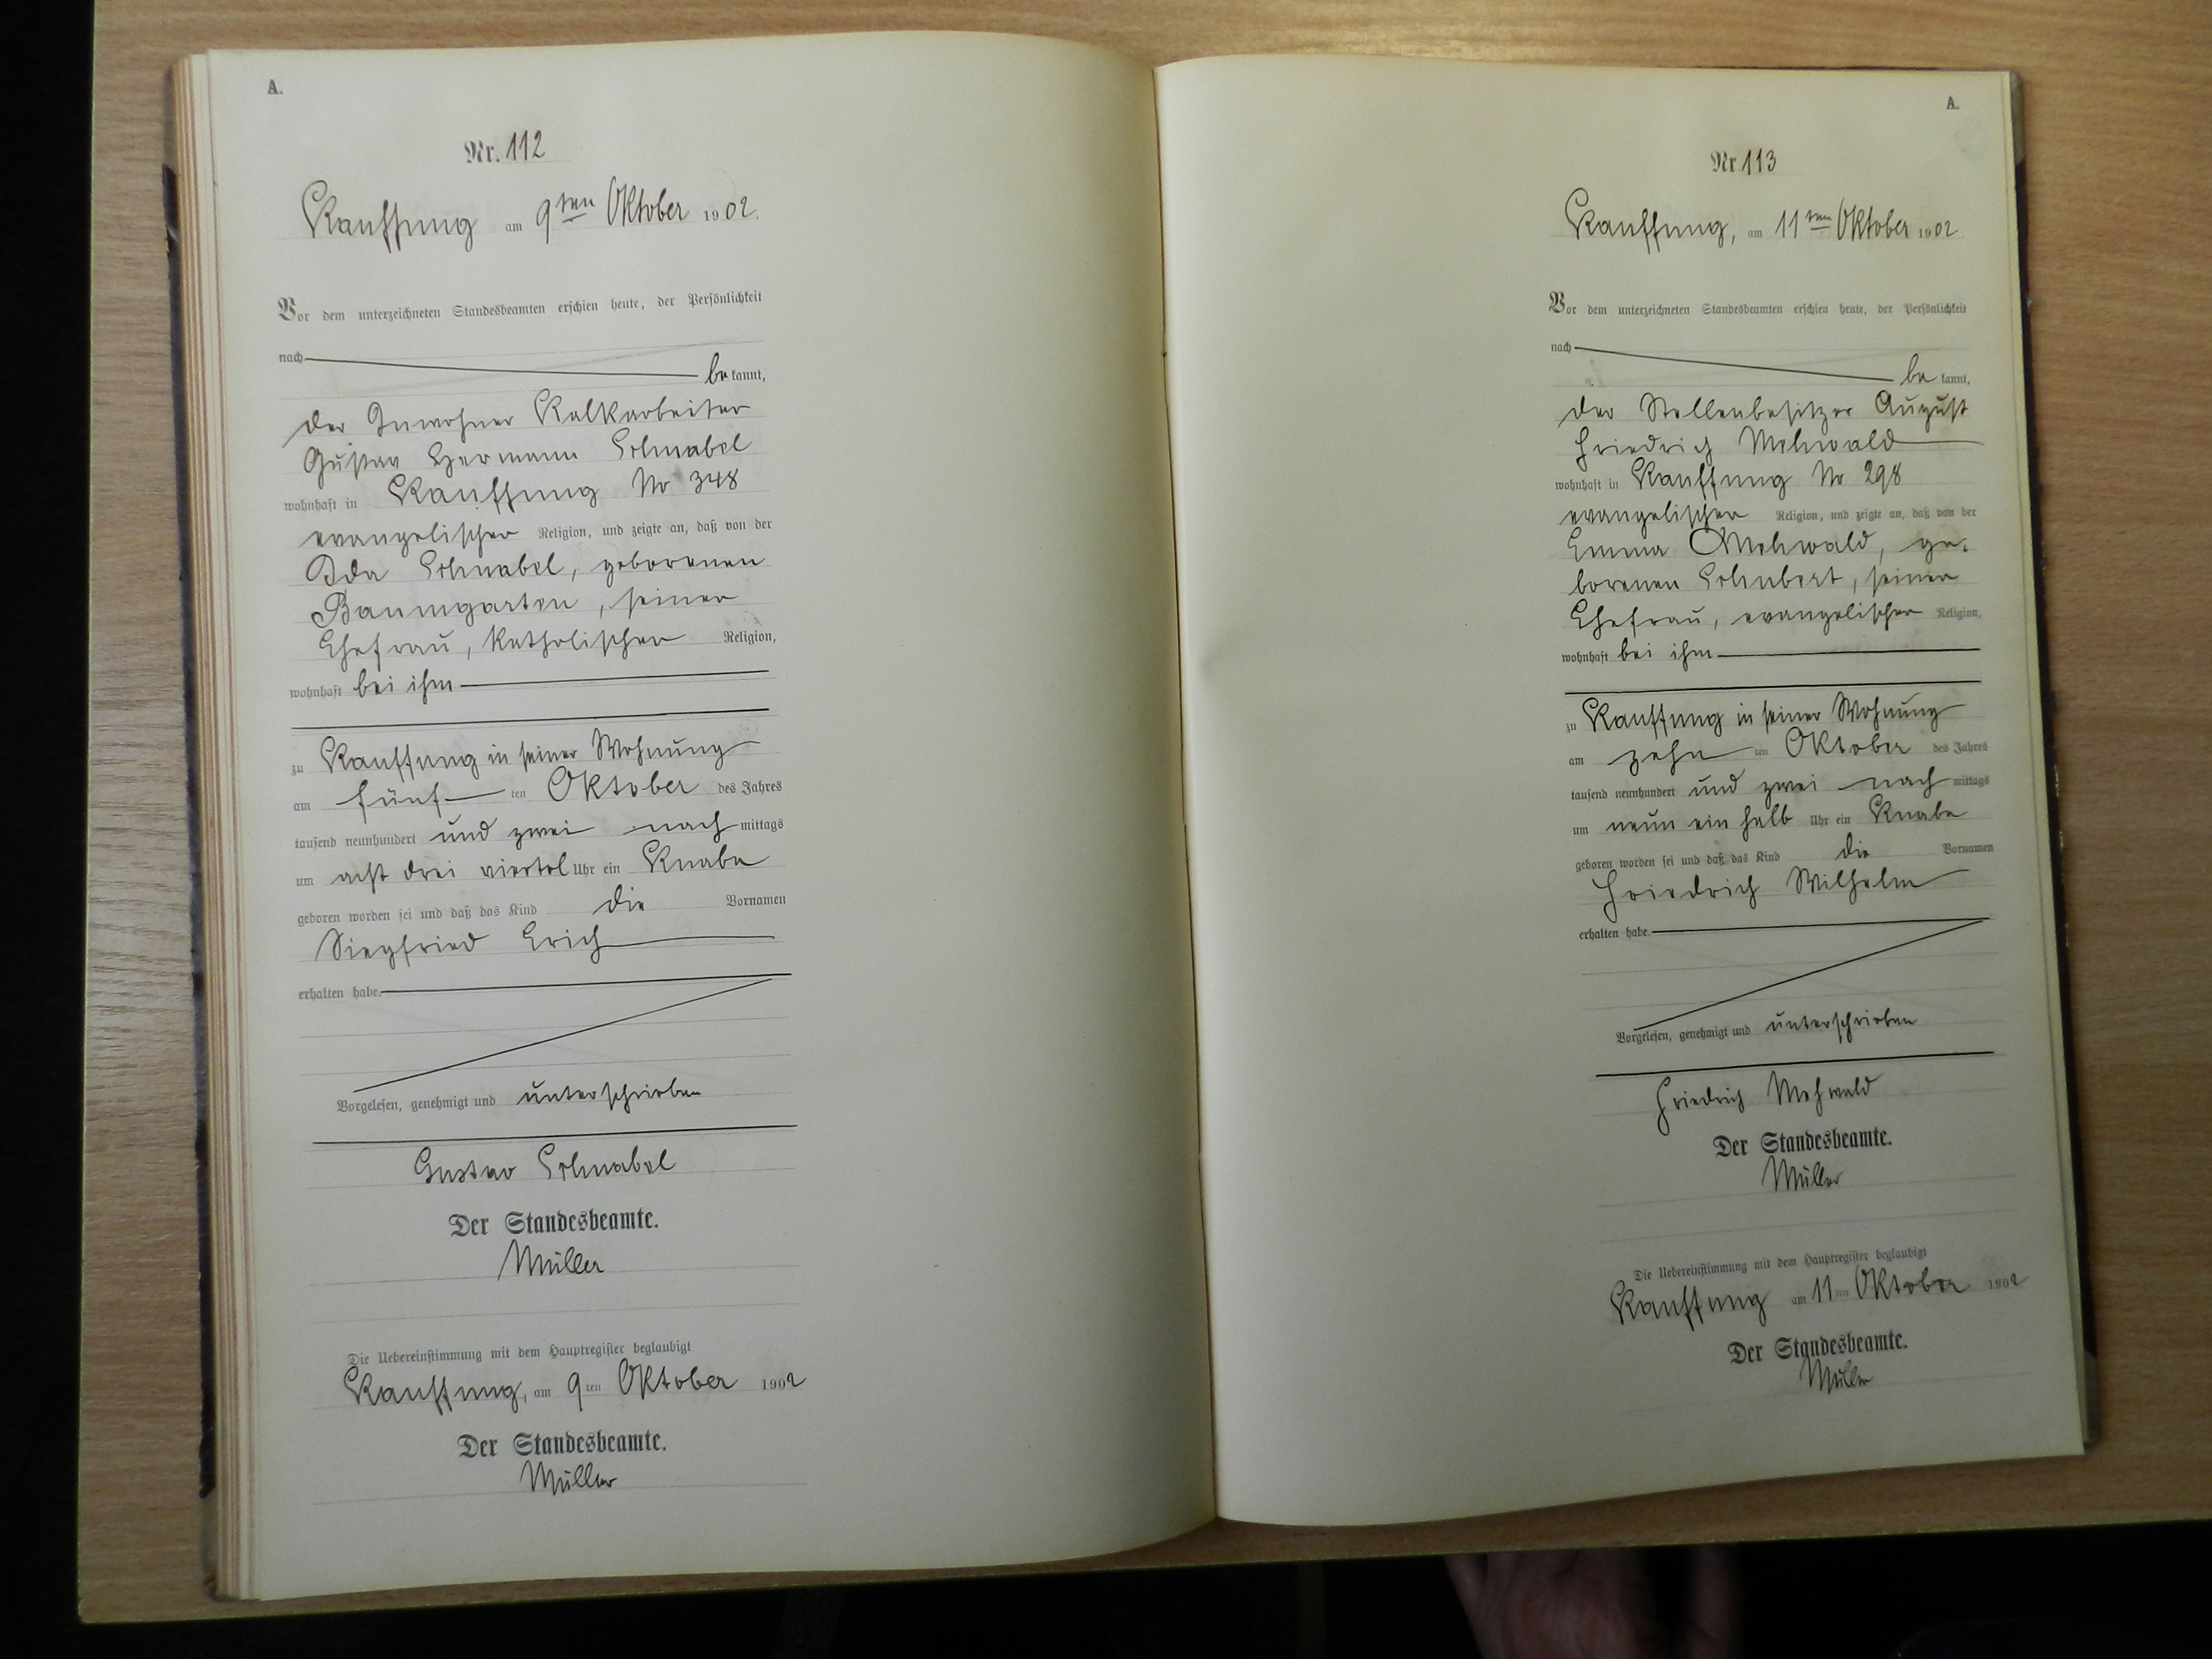 A.
Nr. 112
Kauffung am 9ten Oktober 1902.
Vor dem unterzeichneten Standesbeamten erschien heute, der Persönlichkeit
nach
be kannt,
der Inwohner Kalkarbeiter
Gustav Hermann Schnabel
wohnhaft in Kauffung No 348
evangelischer Religion, und zeigte an, daß von der
Ida Schnabel, geborenen
Baumgarten, seiner
Ehefrau, katholischer Religion,
wohnhaft bei ihm
zu Kauffung in seiner Wohnung
am fünf ten Oktober des Jahres
tausend neunhundert und zwei nach mittags
um acht drei viertel Uhr ein Knabe
geboren worden sei und daß das Kind die Vornamen
Siegfried Erich
erhalten habe.
Vorgelesen, genehmigt und unterschrieben
Gustav Schnabel
Der Standesbeamte.
Müller
Die Uebereinstimmung mit dem Hauptregister beglaubigt
Kauffung, am 9ten Oktober 1902
Der Standesbeamte.
Müller
A.
Nr. 113
Kauffung, am 11ten Oktober 1902
Vor dem unterzeichneten Standesbeamten erschien heute, der Persönlichkeit
nach
be kannt,
der Stellenbesitzer August
Friedrich Mehwald
wohnhaft in Kauffung No 298
evangelischer Religion, und zeigte an, daß von der
Emma Mehwald, ge-
borenen Schubert, seiner
Ehefrau, evangelischer Religion,
wohnhaft bei ihm
zu Kauffung in seiner Wohnung
am zehn ten Oktober des Jahres
tausend neunhundert und zwei nach mittags
um neun ein halb Uhr ein Knabe
geboren worden sei und daß das Kind die Vornamen
Friedrich Wilhelm
erhalten habe.
Vorgelesen, genehmigt und unterschrieben
Friedrich Mehwald
Der Standesbeamte.
Müller
Die Uebereinstimmung mit dem Hauptregister beglaubigt
Kauffung am 11ten Oktober 1902
Der Standesbeamte.
Müller